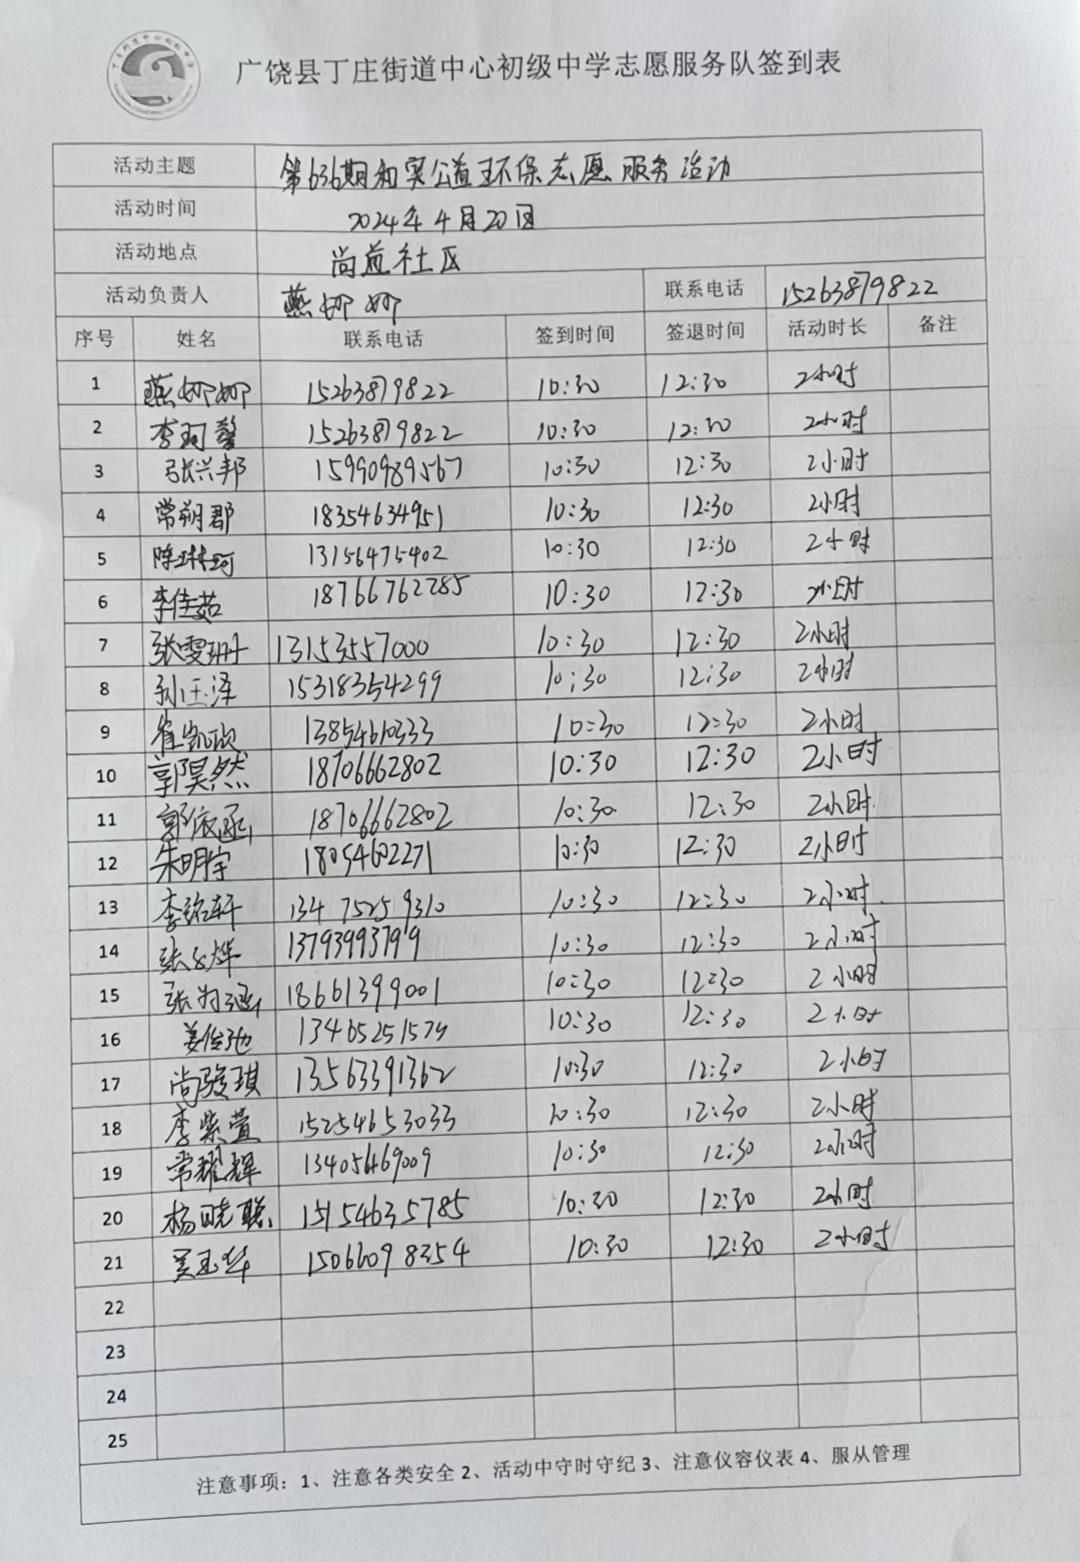 广饶县丁庄街道中心初级中学志愿服务队签到表
活动主题 第636期和实公益环保志愿服务活动
活动时间 2024年4月20日
活动地点 尚苑社区
活动负责人 燕娜娜 联系电话 15263879822
序号 姓名 联系电话 签到时间 签退时间 活动时长 备注
1 燕娜娜 15263879822 10:30 12:30 2小时
2 李珂馨 15263879822 10:30 12:30 2小时
3 张兴邦 15990989567 10:30 12:30 2小时
4 常朔郡 18354634951 10:30 12:30 2小时
5 陈琳珂 13156475402 10:30 12:30 2小时
6 李佳茹 18766762285 10:30 12:30 2小时
7 张雯珊 13153557000 10:30 12:30 2小时
8 孙玉泽 15318354299 10:30 12:30 2小时
9 崔凯欣 13854610333 10:30 12:30 2小时
10 郭昊然 18706662802 10:30 12:30 2小时
11 郭依函 18706662802 10:30 12:30 2小时
12 朱明宇 18054602271 10:30 12:30 2小时
13 李铭轩 13475259310 10:30 12:30 2小时
14 张 烨 13793993799 10:30 12:30 2小时
15 张 涵 18661399001 10:30 12:30 2小时
16 姜俊驰 13465251579 10:30 12:30 2小时
17 尚骏琪 13563391362 10:30 12:30 2小时
18 李紫萱 15254653033 10:30 12:30 2小时
19 常耀辉 13405469009 10:30 12:30 2小时
20 杨晓聪 15154635785 10:30 12:30 2小时
21 吴玉华 15066098354 10:30 12:30 2小时
22
23
24
25
注意事项：1、注意各类安全 2、活动中守时守纪 3、注意仪容仪表 4、服从管理